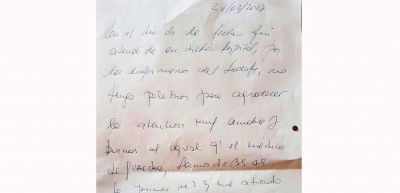 21/02/2017
En el día de la fecha fui
atendido en dicho hospital, por
los enfermeros del , no
tengo palabras para agradecer
la atención muy amables y
buenos al igual q' el médico
de guardia, Somos de BS AS
la primer vez q' me atiendo